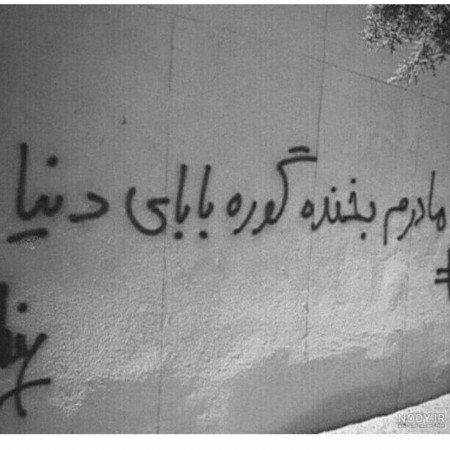 مادرم بخنده گوره بابای دنیا
NODY.IR